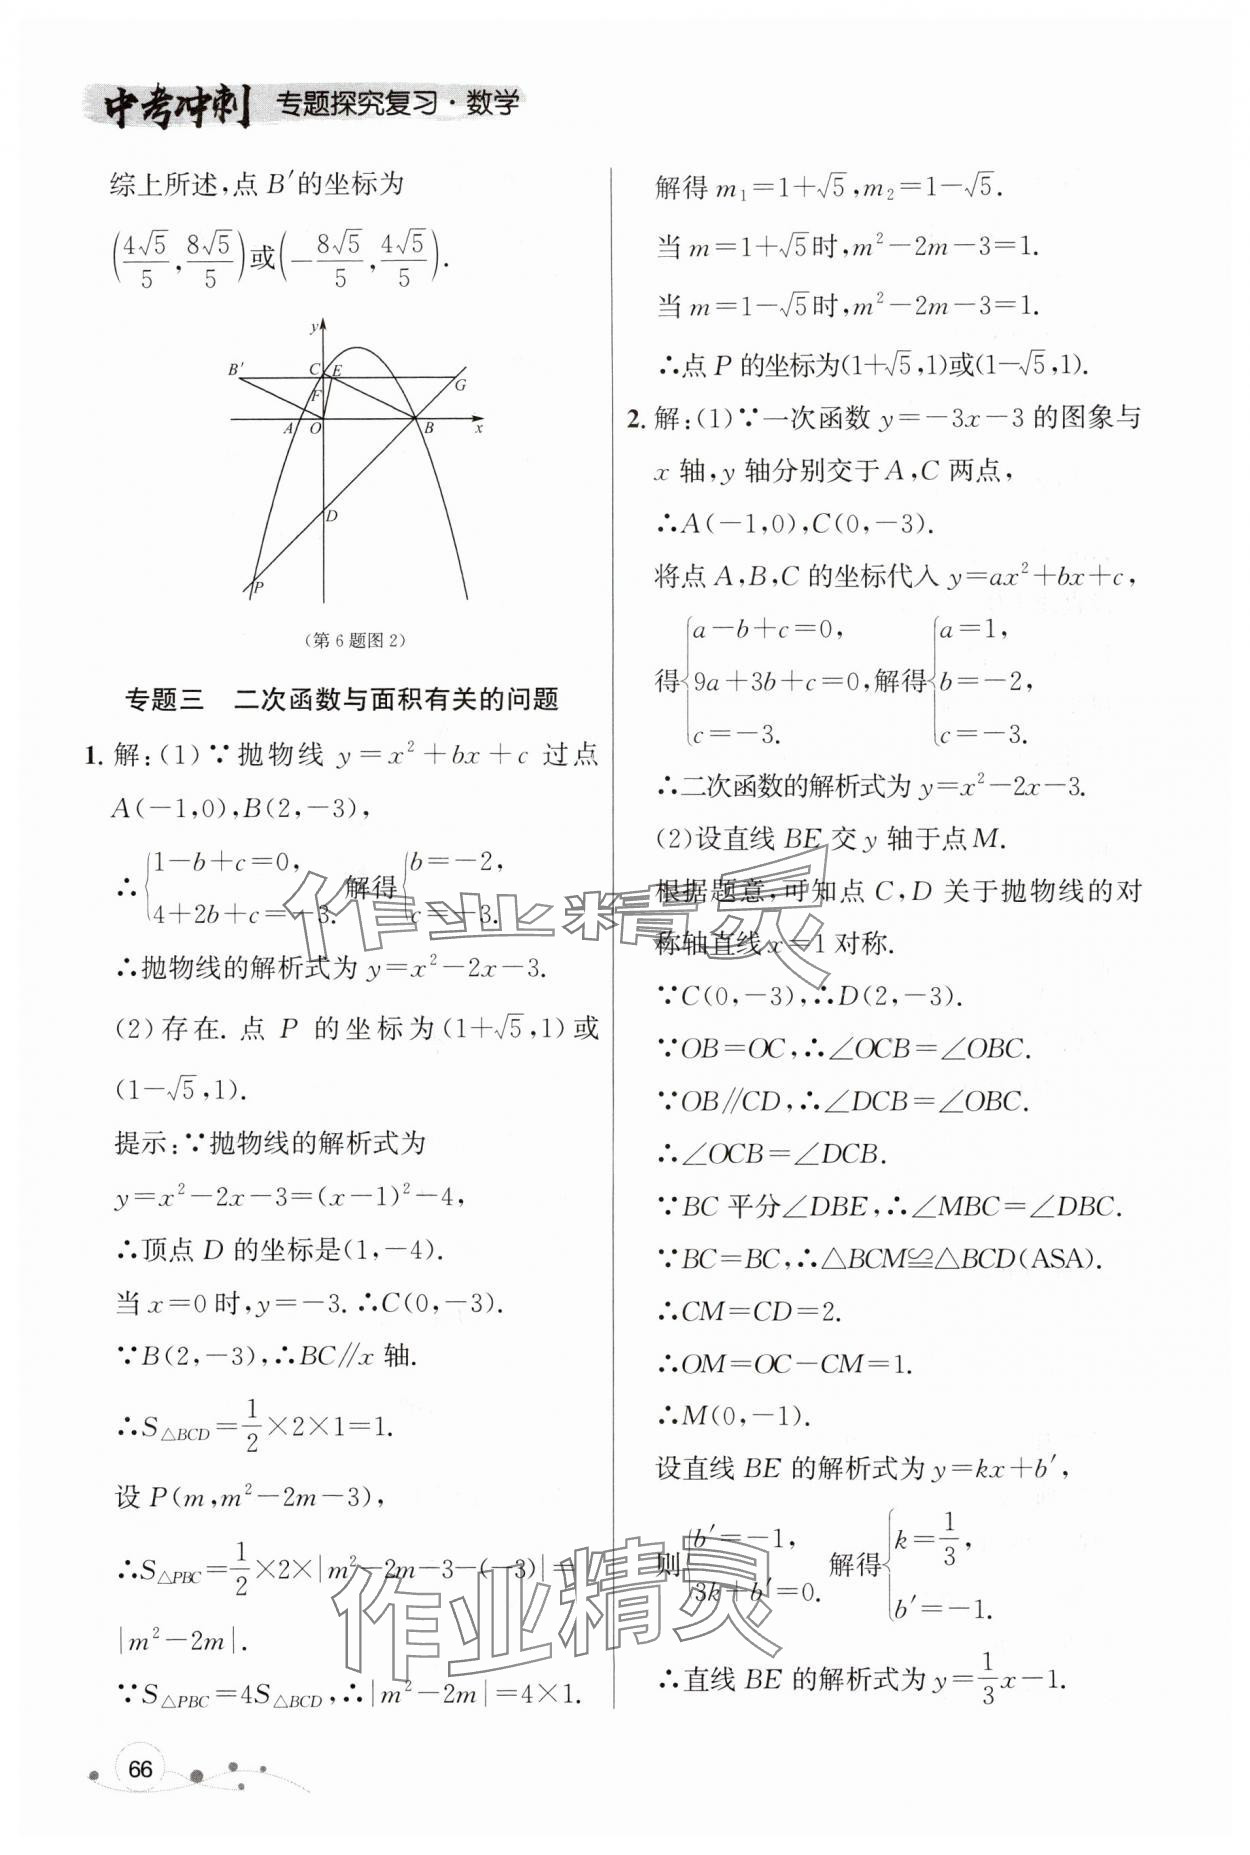 中考冲刺 专题探究复习·数学
综上所述,点 B′的坐标为
(4√5/5, 8√5/5)或(-8√5/5, 4√5/5).
y
B′ C E G
F
A O B x
D
P
(第 6 题图 2)
专题三 二次函数与面积有关的问题
1. 解:(1)∵抛物线 y=x²+bx+c 过点
A(-1,0),B(2,-3),
∴{1-b+c=0, 4+2b+c=-3. 解得{b=-2, c=-3.
∴抛物线的解析式为 y=x²-2x-3.
(2)存在. 点 P 的坐标为(1+√5,1)或
(1-√5,1).
提示:∵抛物线的解析式为
y=x²-2x-3=(x-1)²-4,
∴顶点 D 的坐标是(1,-4).
当 x=0 时,y=-3. ∴C(0,-3).
∵B(2,-3),∴BC∥x 轴.
∴S△BCD=1/2×2×1=1.
设 P(m,m²-2m-3),
∴S△PBC=1/2×2×|m²-2m-3-(-3)|=
|m²-2m|.
∵S△PBC=4S△BCD,∴|m²-2m|=4×1.
66
解得 m₁=1+√5,m₂=1-√5.
当 m=1+√5时,m²-2m-3=1.
当 m=1-√5时,m²-2m-3=1.
∴点 P 的坐标为(1+√5,1)或(1-√5,1).
2. 解:(1)∵一次函数 y=-3x-3 的图象与
x 轴,y 轴分别交于 A,C 两点,
∴A(-1,0),C(0,-3).
将点 A,B,C 的坐标代入 y=ax²+bx+c,
得{a-b+c=0, 9a+3b+c=0, c=-3. 解得{a=1, b=-2, c=-3.
∴二次函数的解析式为 y=x²-2x-3.
(2)设直线 BE 交 y 轴于点 M.
根据题意,可知点 C,D 关于抛物线的对
称轴直线 x=1 对称.
∵C(0,-3),∴D(2,-3).
∵OB=OC,∴∠OCB=∠OBC.
∵OB∥CD,∴∠DCB=∠OBC.
∴∠OCB=∠DCB.
∵BC 平分∠DBE,∴∠MBC=∠DBC.
∵BC=BC,∴△BCM≌△BCD(ASA).
∴CM=CD=2.
∴OM=OC-CM=1.
∴M(0,-1).
设直线 BE 的解析式为 y=kx+b′,
则{b′=-1, 3k+b′=0. 解得{k=1/3, b′=-1.
∴直线 BE 的解析式为 y=1/3x-1.
作业精灵
作业精灵